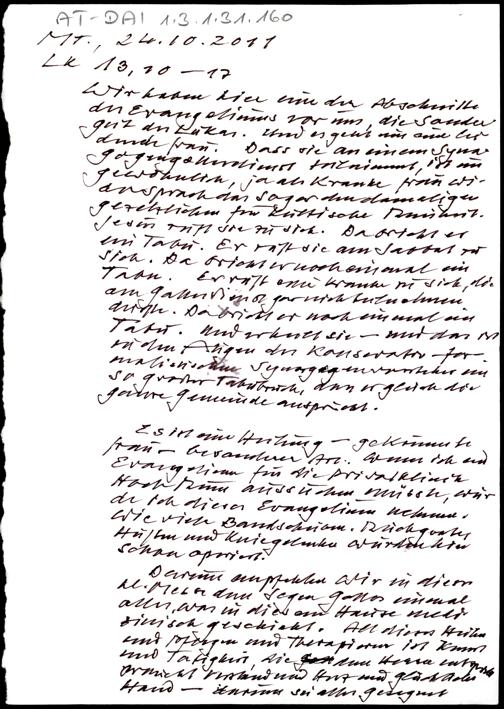 AT-DAI 1.3.1.31.160
Mt., 24.10.2011
Lk 13,10-17
Wir haben hier eine der Abschnitte
des Evangeliums vor uns, die Sonder
gut des Lukas. Und es geht um eine
frau. Dass sie an einem Syna
gogengottesdienst teilnimmt, ist un
gewöhnlich, ja als Kranke frau wi
dersprach das sogar den damaligen
gesetzlichen für kultische Reinheit.
Jesus ruft sie zu sich. Da bricht er
ein Tabu. Er ruft sie am Sabbat zu
sich. Da bricht er noch einmal ein
Tabu. Er ruft eine Kranke zu sich, die
am Gottesdienst gar nicht teilnehmen
dürfte. Da bricht er noch einmal ein
Tabu. Und er heilt sie - und das ist
in den Augen des Konservativ-for
malistischen Synagogenvorstehers ein
so großer Tabubruch, dass er gleich die
ganze Gemeinde anspricht.
Es ist eine Heilung - gekrümmte
frau - besonderer Art. Wenn ich ein
Evangelium für die Privatklinik
Hochrum aussuchen müsste, wür
de ich dieses Evangelium nehmen.
Wie viele Bandscheiben, Rückgrate,
Hüften und Kniegelenke wurden hier
schon operiert.
Darum empfehlen wir in dieser
hl. Messe dem Segen Gottes einmal
alles, was in diesem Hause medi
zinisch geschieht. All dieses Heilen
und Pflegen und Therapieren ist Kunst
und Tätigkeit, die dem Herrn
braucht Verstand und Herz und glückliche
Hand - darum sei alles gesegnet